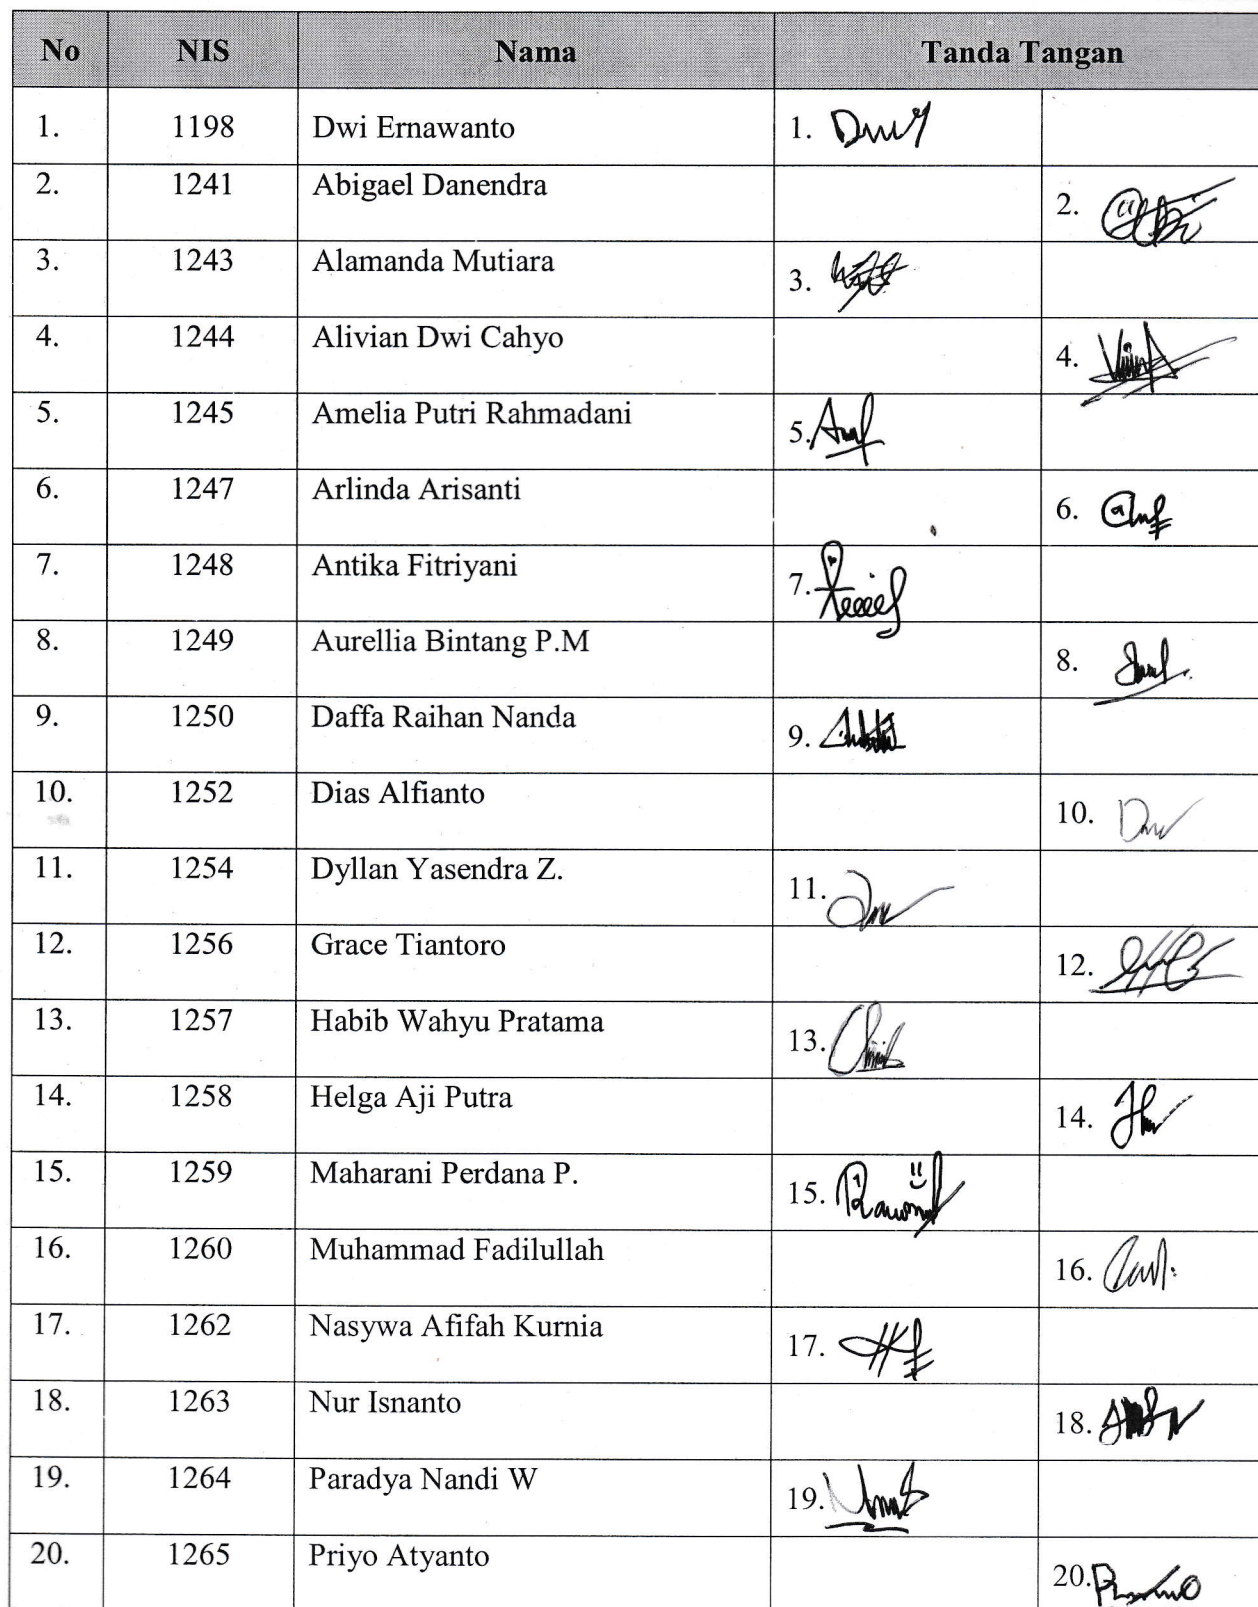 No NIS Nama Tanda Tangan
1. 1198 Dwi Ernawanto 1.
2. 1241 Abigael Danendra 2.
3. 1243 Alamanda Mutiara 3.
4. 1244 Alivian Dwi Cahyo 4.
5. 1245 Amelia Putri Rahmadani 5.
6. 1247 Arlinda Arisanti 6.
7. 1248 Antika Fitriyani 7.
8. 1249 Aurellia Bintang P.M 8.
9. 1250 Daffa Raihan Nanda 9.
10. 1252 Dias Alfianto 10.
11. 1254 Dyllan Yasendra Z. 11.
12. 1256 Grace Tiantoro 12.
13. 1257 Habib Wahyu Pratama 13.
14. 1258 Helga Aji Putra 14.
15. 1259 Maharani Perdana P. 15.
16. 1260 Muhammad Fadilullah 16.
17. 1262 Nasywa Afifah Kurnia 17.
18. 1263 Nur Isnanto 18.
19. 1264 Paradya Nandi W 19.
20. 1265 Priyo Atyanto 20.